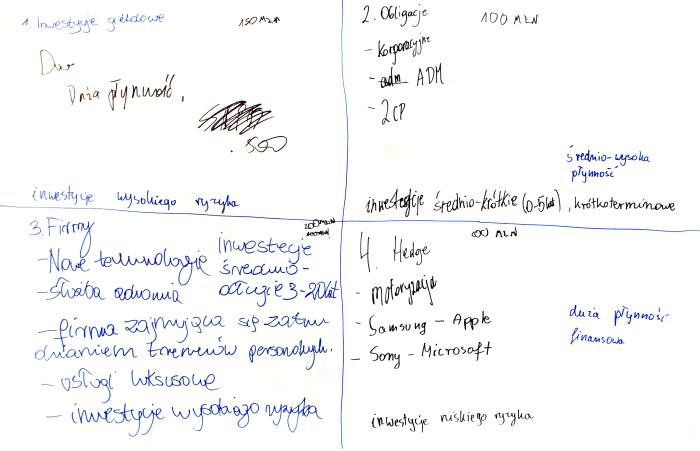 1. Inwestyje giełdowe 150 MLN
Du
Duża płynność,
500
inwestycje wysokiego ryzyka
2. Obligacje 100 MLN
- Korporacyjne
- adm ADM
- 2CP
średnio-wysoka
płynność
inwestycje średnio-krótkie (0-5 lat), krótkoterminowe
3. Firmy 200 MLN
100 MLN
- Nowe technologie inwestecje
średnio-
- służba zdrowia długie 3-20 lat
- firma zajmująca się zatru
dnianiem trenerów personalnych.
- usługi luksusowe
- inwestycje wysokiego ryzyka
4. Hedge 100 MLN
- Motoryzacja
- Samsung - Apple
- Sony - Microsoft
duża płynność
finansowa
inwestycje niskiego ryzyka